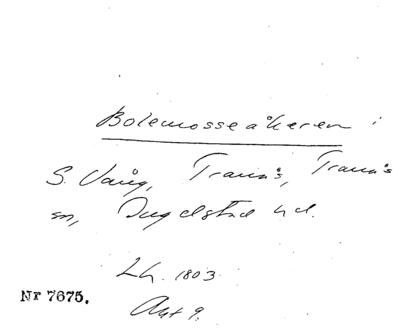 Bolemosseåkeren
S. Vång, Tranås, Tranås
sn, Ingelstad hd.
Lh. 1803
Akt 9.
Nr 7675.